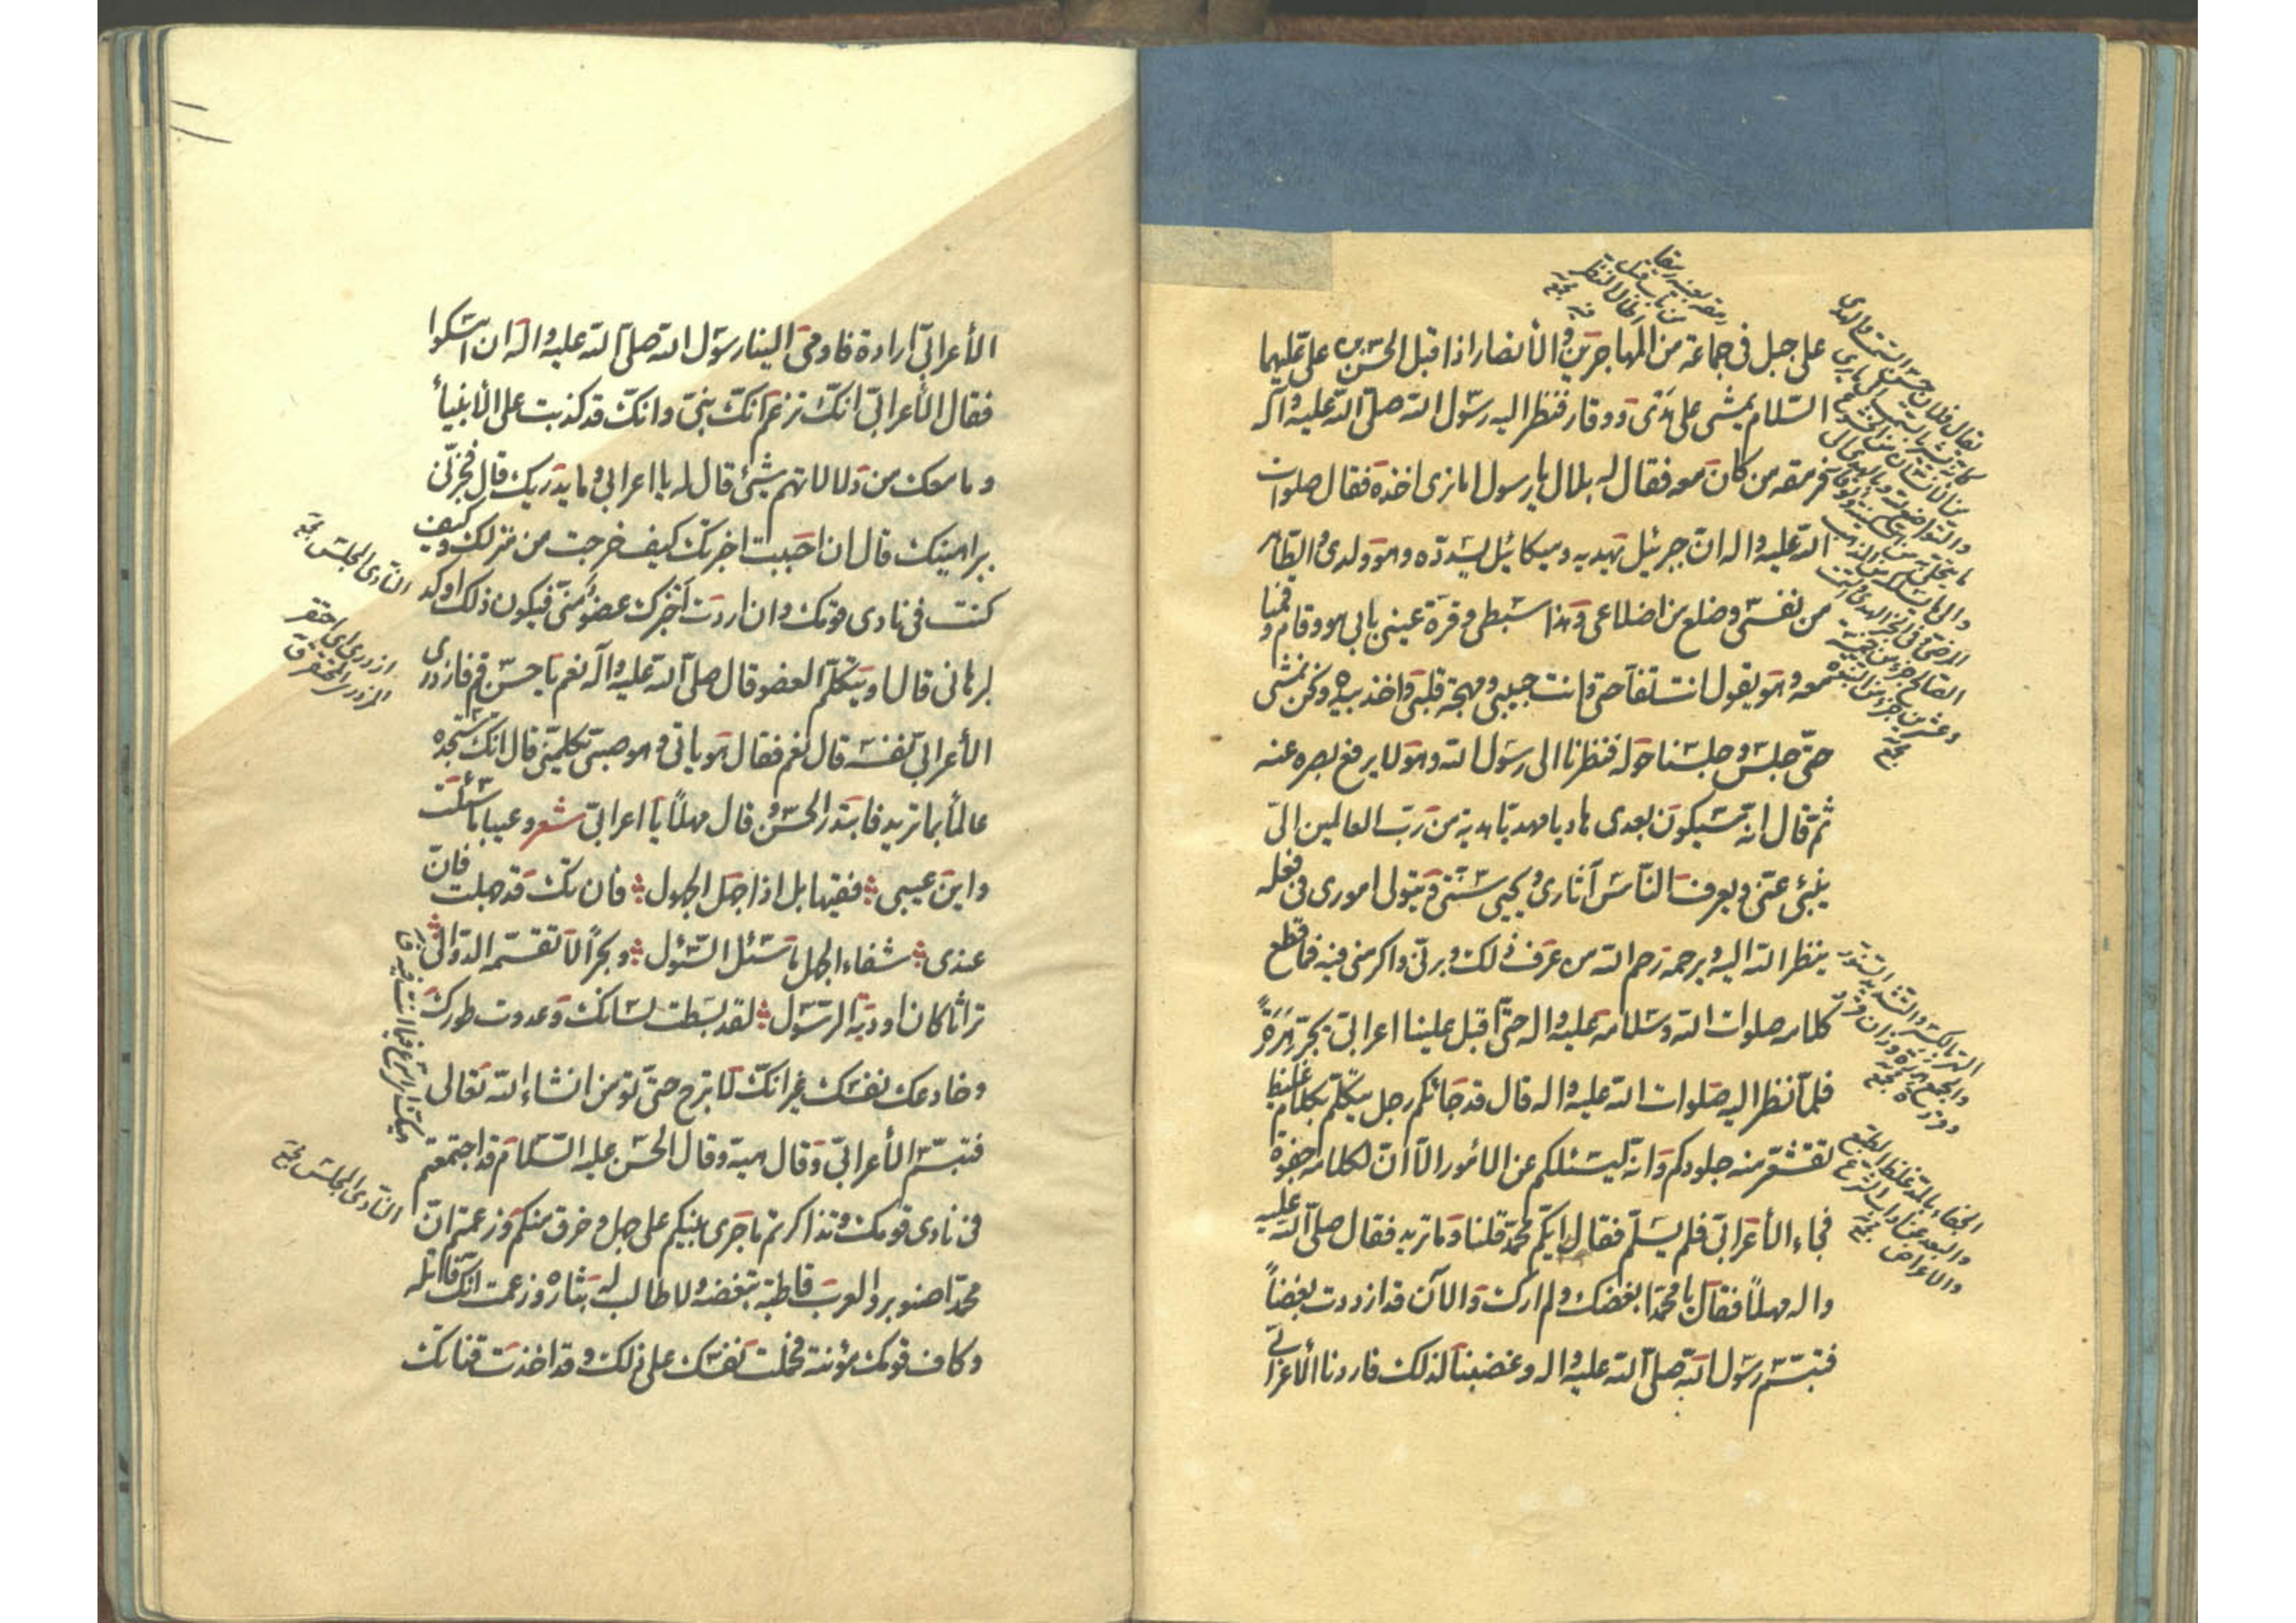 على جبل فى جماعة من المهاجرين والأنصار اذا قبل الحسن بن على عليهما
السّلام يمشى على هدى ووقار فنظر اليه رسول الله صلّى الله عليه وآله
فرمقه من كان معه فقال له بلال يا رسول اما ترى اخذه فقال صلوات
الله عليه واله انّ جبرئيل يهديه وميكائيل يسدّده وهو ولدى والطّاهر
من نفسى وضلع من اضلاعى وهذا سبطى وقرة عينى بابى هو وقام وقمنا
معه وهو يقول انت تفّاحتى وانت حبيبى ومهجة قلبى واخذ بيده ونحن نمشى
حتّى جلس وجلسنا حوله فنظرنا الى رسول الله وهو لا يرفع بصره عنه
ثم قال انه سيكون بعدى هاديا مهديّا هدية من ربّ العالمين الىّ
ينبئ عنّى ويعرف النّاس آثارى ويحيى سنّتى ويتولى امورى فى فعله
ينظر الله اليه ويرحمه رحم الله من عرف ذلك وبرنى واكرمنى فيه فما قطع
كلامه صلوات الله وسلامه عليه واله حتّى اقبل علينا اعرابى يجرّ هرَاوَةً
فلمّا نظر اليه صلوات الله عليه واله قال قد جائكم رجل يتكلّم بكلام غليظ
تقشعّر منه جلودكم وانه ليسئلكم عن الأمور الّا انّ لكلامه جفوة
فجاء الأعرابىّ فلم يسلّم فقال ايّكم محمّد قلنا وما تريد فقال صلّى الله عليه
واله مهلاً فقال يا محمّد ابغضك ولم ارك والآن قد ازددت بغضاً
فتبسّم رسول الله صلّى الله عليه واله وغضبنا لذلك فاردنا الأعرابى
الأعرابىّ ارادة فاومى الينا رسول الله صلّى الله عليه واله ان اسكتوا
فقال الأعرابىّ انّك تزعم انّك نبىّ وانّك قد كذبت على الأنبياء
وما معك من دلالاتهم شيئ قال له يا اعرابى وما يدريك قال فخبّرنى
ببراهينك قال ان احببت اخبرتك كيف خرجت من منزلك وكيف
كنت فى نادى قومك وان اردت اخبرك عضو منّى فيكون ذلك اوكد
لبرهانى قال او يتكلّم العضو قال صلّى الله عليه واله نعم يا حسن قم فازدرى
الأعرابىّ نفسه قال نعم فقال هو ياتى وهو صبىّ يكلّمنى قال انّك ستجده
عالماً بما تريد فابتدر الحسن وقال مهلاً يا اعرابىّ شعر وعييا ما سئلت
وابن عيىى ؞ فقيها بل اذا جهل الجهول ؞ فان تك قد جهلت فانّ
عندى ؞ شفاء الجهل ما سئل السّؤل ؞ وبحراً لا تقسّمه الدّوالى ؞
تراثا كان اورثه الرسول ؞ لقد بسطت لسانك وعدوت طورك
وخادعك نفسك غير انّك لا تبرح حتّى تؤمن انشاء الله تعالى
فتبسّم الأعرابىّ وقال هيه وقال الحسن عليه السّلام قد اجتمعتم
فى نادى قومك وتذاكرتم ما جرى بينكم على جهل وخرق منكم وزعمتم انّ
محمّدا صنوبر والعرب قاطبة تبغضه ولا طالب له بثاره وزعمت انّك قاتله
وكاف قومك مؤنته فحملت نفسك على ذلك وقد اخذت قناتك
النّادى المجلس مجمع
ازدرى اى احتقر
النّادى المجلس مجمع